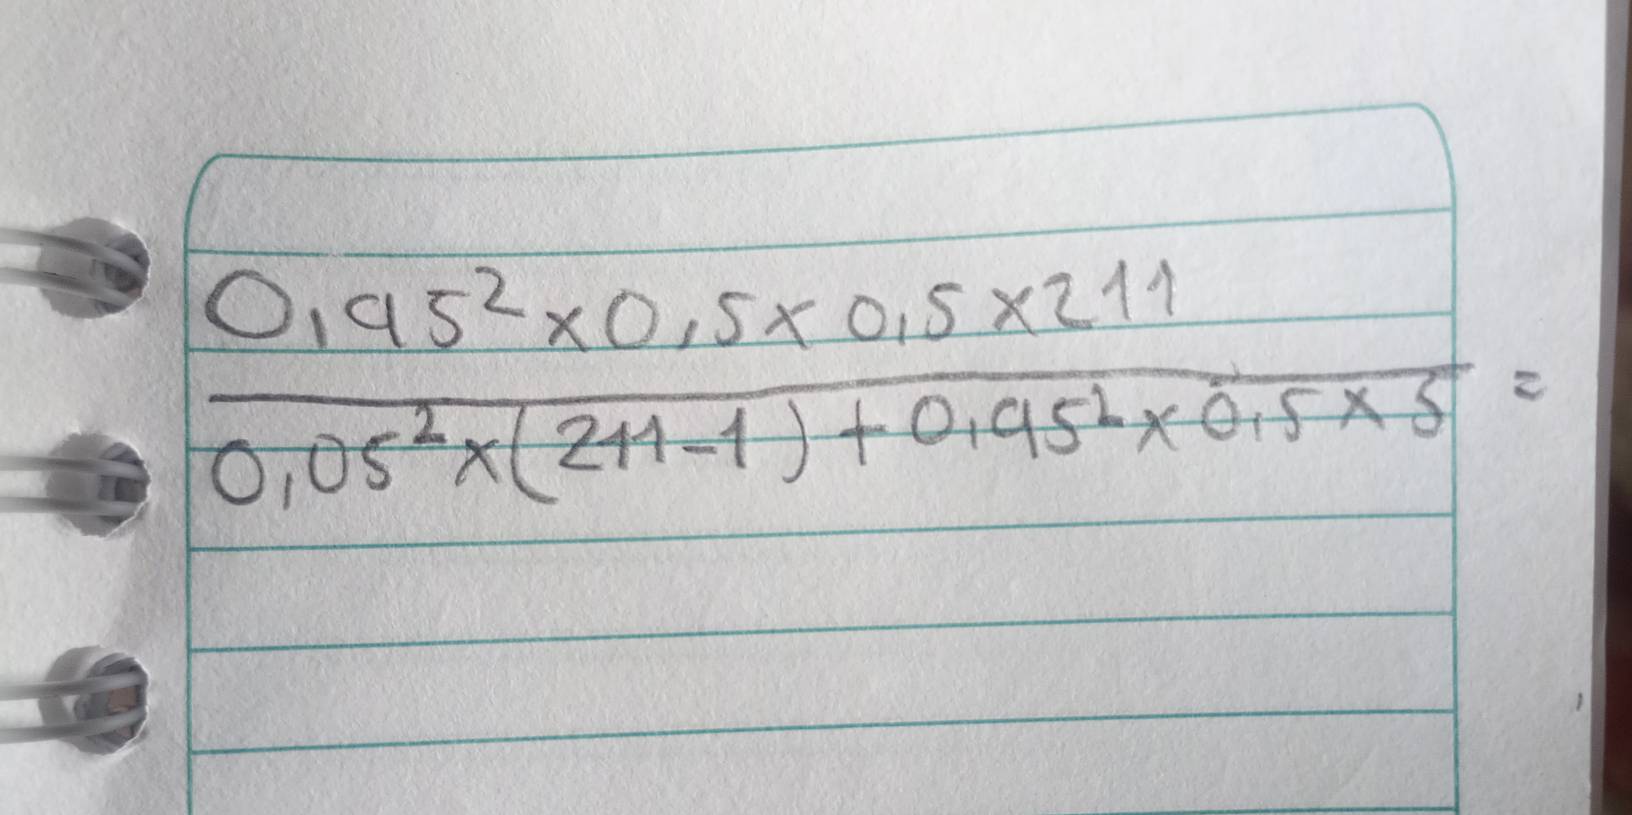 0,95² x 0,5 x 0,5 x 211
0,05² x (211-1) + 0,95² x 0,5 x 5 =